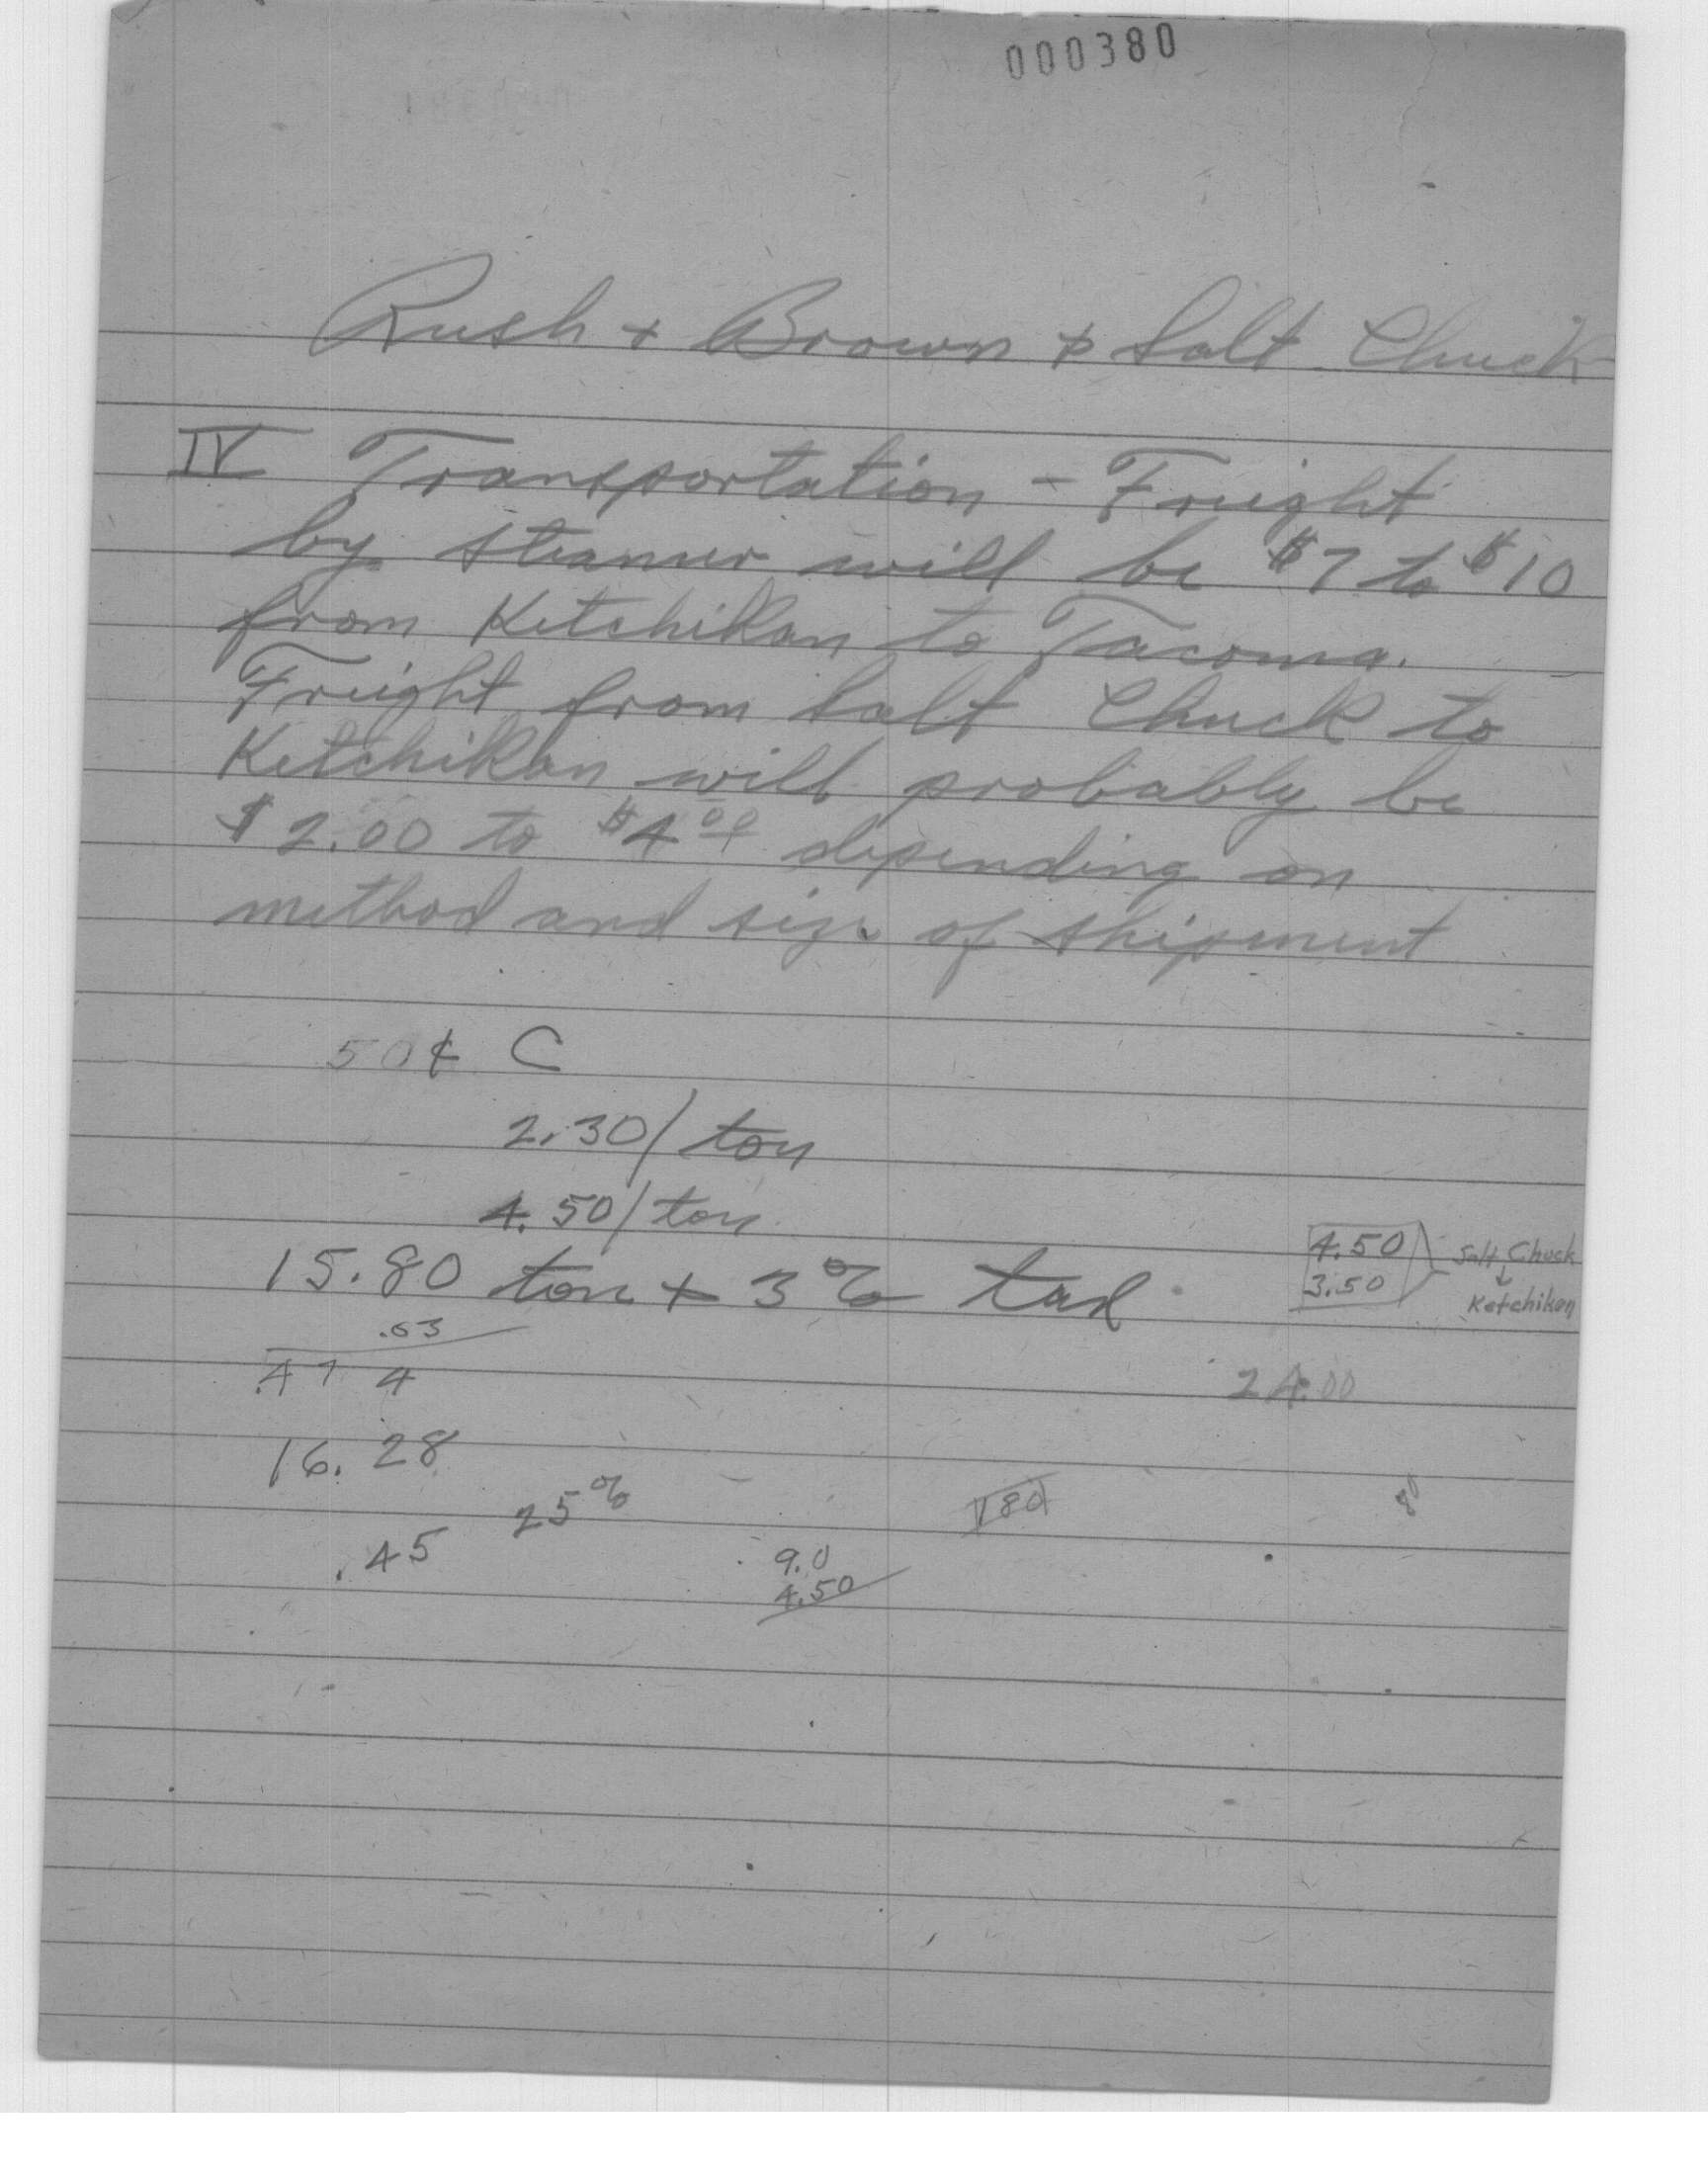 000380
Rush + Brown + Salt Chuck
IV Transportation - Freight
by steamer will be $7 to $10
from Ketchikan to Tacoma.
Freight from Salt Chuck to
Ketchikan will probably be
$2.00 to $4.00 depending on
method and size of shipment
50¢ C
2.30/ton
4.50/ton
15.80 ton + 3%
4.50
3.50
Salt Chuck
↓
Ketchikan
.63
.47 4
24.00
16.28
25%
180
.45
9.0
4.50